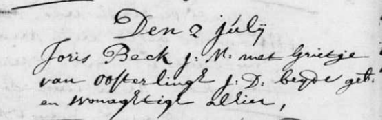 Den 2 julÿ
Joris Beck j. M. met Grietje
van oosterlingh j. D. beÿde geb.
en woonagtigh alhier,